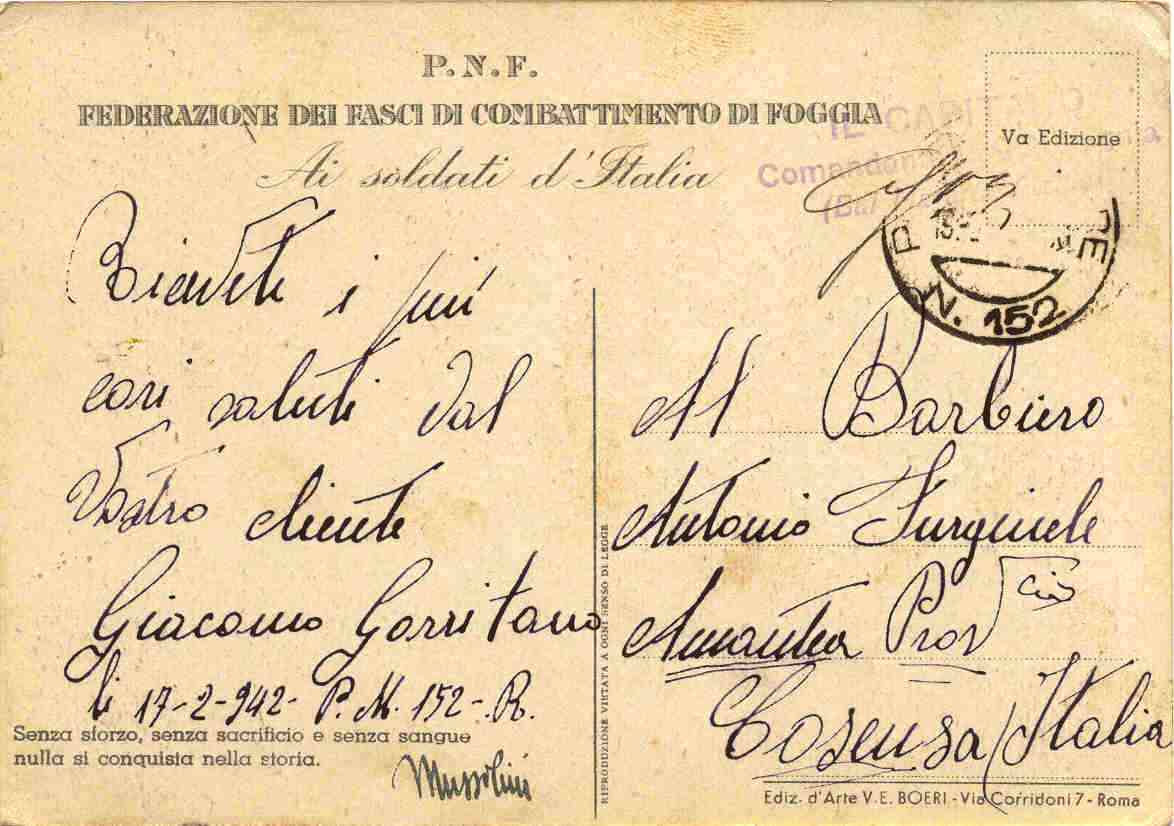 P.N.F.
FEDERAZIONE DEI FASCI DI COMBATTIMENTO DI FOGGIA
Ai soldati d'Italia
IL CAPITANO
Va Edizione
P E
N. 152
Ricevete i più
cari saluti dal
Vostro cliente
Giacomo Gorritano
li 17-2-942- P.M. 152-R.
Senza sforzo, senza sacrificio e senza sangue
nulla si conquista nella storia.
Mussolini
RIPRODUZIONE VIETATA A OGNI SENSO DI LEGGE
Al Barbiero
Antonio Furgiuele
Amantea Prov cia
Cosenza Italia
Ediz. d'Arte V.E. BOERI - Via Corridoni 7 - Roma